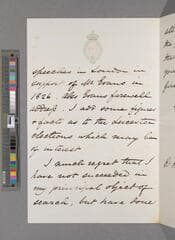 speeches in London in
support of Mr Evans in
1826. Mrs Evans farewell
address. I add some figures
& facts as to the
elections which may be
of interest
I much regret that I
have not succeeded in
my principal object of
search, but have done